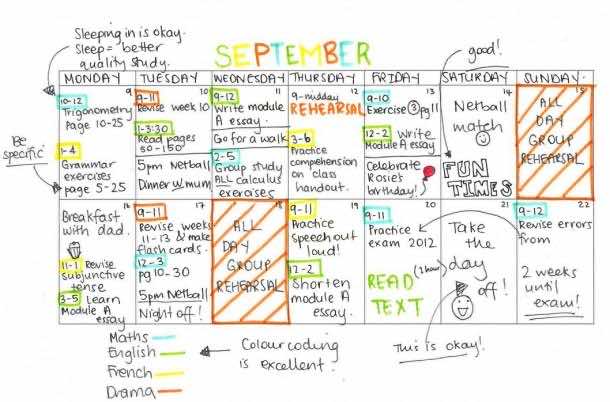 Sleeping in is okay.
Sleep = better
quality study.
SEPTEMBER
good!
MONDAY TUESDAY WEDNESDAY THURSDAY FRIDAY SATURDAY SUNDAY
Be
specific
9
10-12
Trigonometry
page 10-25
1-4
Grammar
exercises
page 5-25
10
9-11
Revise week 10
1-3:30
Read pages
50-150
5pm Netball
Dinner w/ mum
11
9-12
Write module
A essay.
Go for a walk
2-5
Group study
ALL calculus
exercises
12
9-midday
REHEARSAL
3-6
Practice
comprehension
on class
handout.
13
9-10
Exercise 3 pg 11
12-2 Write
Module A essay
Celebrate
Rosie's
birthday!
14
Netball
match
FUN
TIMES
15
ALL
DAY
GROUP
REHEARSAL
16
Breakfast
with dad.
11-1 Revise
subjunctive
tense
3-5 Learn
Module A
essay
17
9-11
Revise weeks
11-13 & make
flashcards.
12-3
pg 10-30
5pm Netball
Night off!
18
ALL
DAY
GROUP
REHEARSAL
19
9-11
Practice
speech out
loud!
12-2
Shorten
module A
essay.
20
9-11
Practice
exam 2012
(2 hour)
READ
TEXT
21
Take
the
day
off!
22
9-12
Revise errors
from
2 weeks
until
exam!
Maths
English
French
Drama
Colour coding
is excellent!
This is okay!